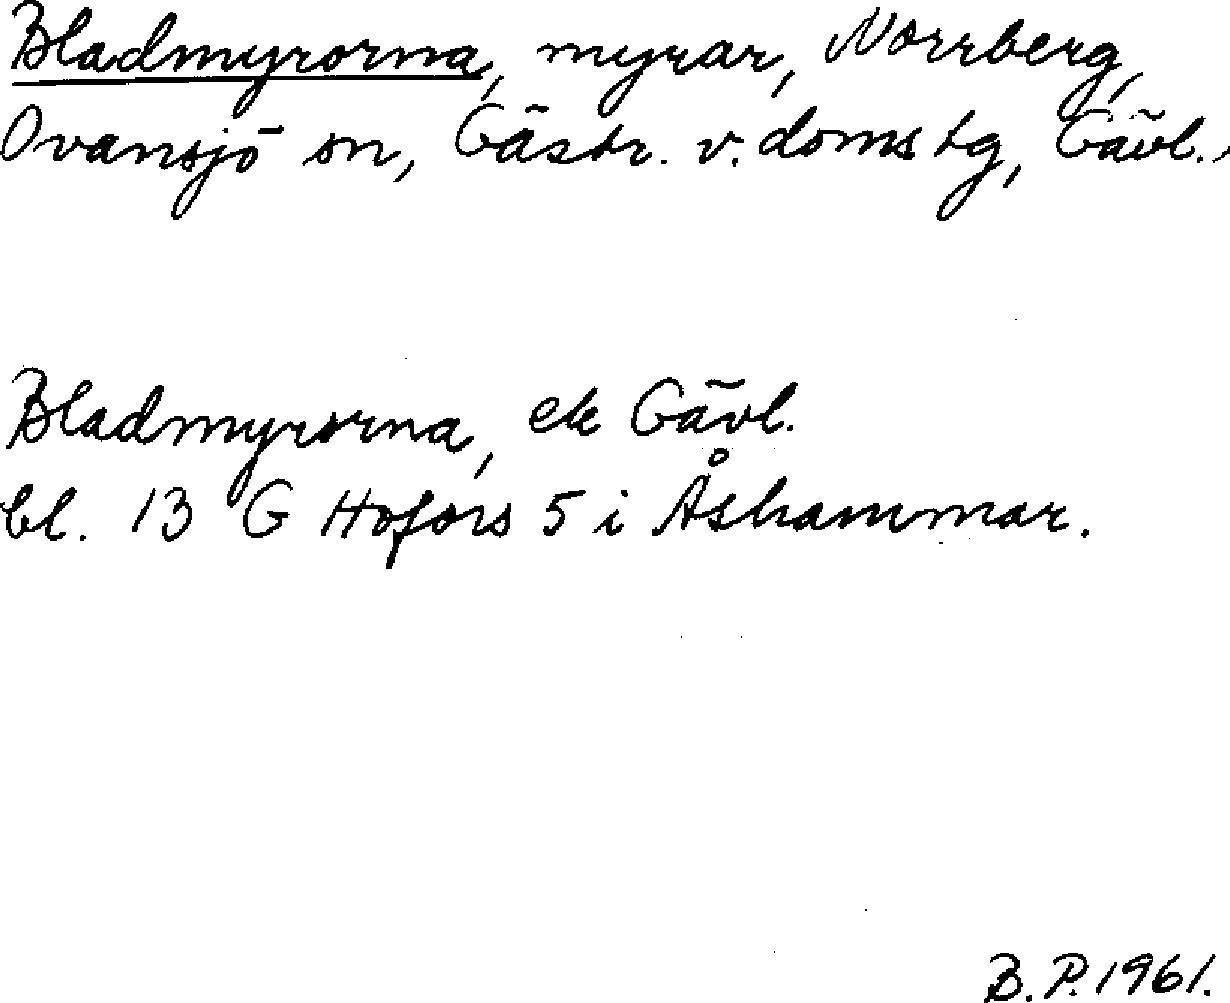 Bladmyrorna, myrar, Norrberg,
Ovansjö sn, Gästr. v. doms tg, Gävl.,
Bladmyrorna, ek Gävl.
bl. 13 G Hofors 5 i Åshammar.
B. P. 1961.